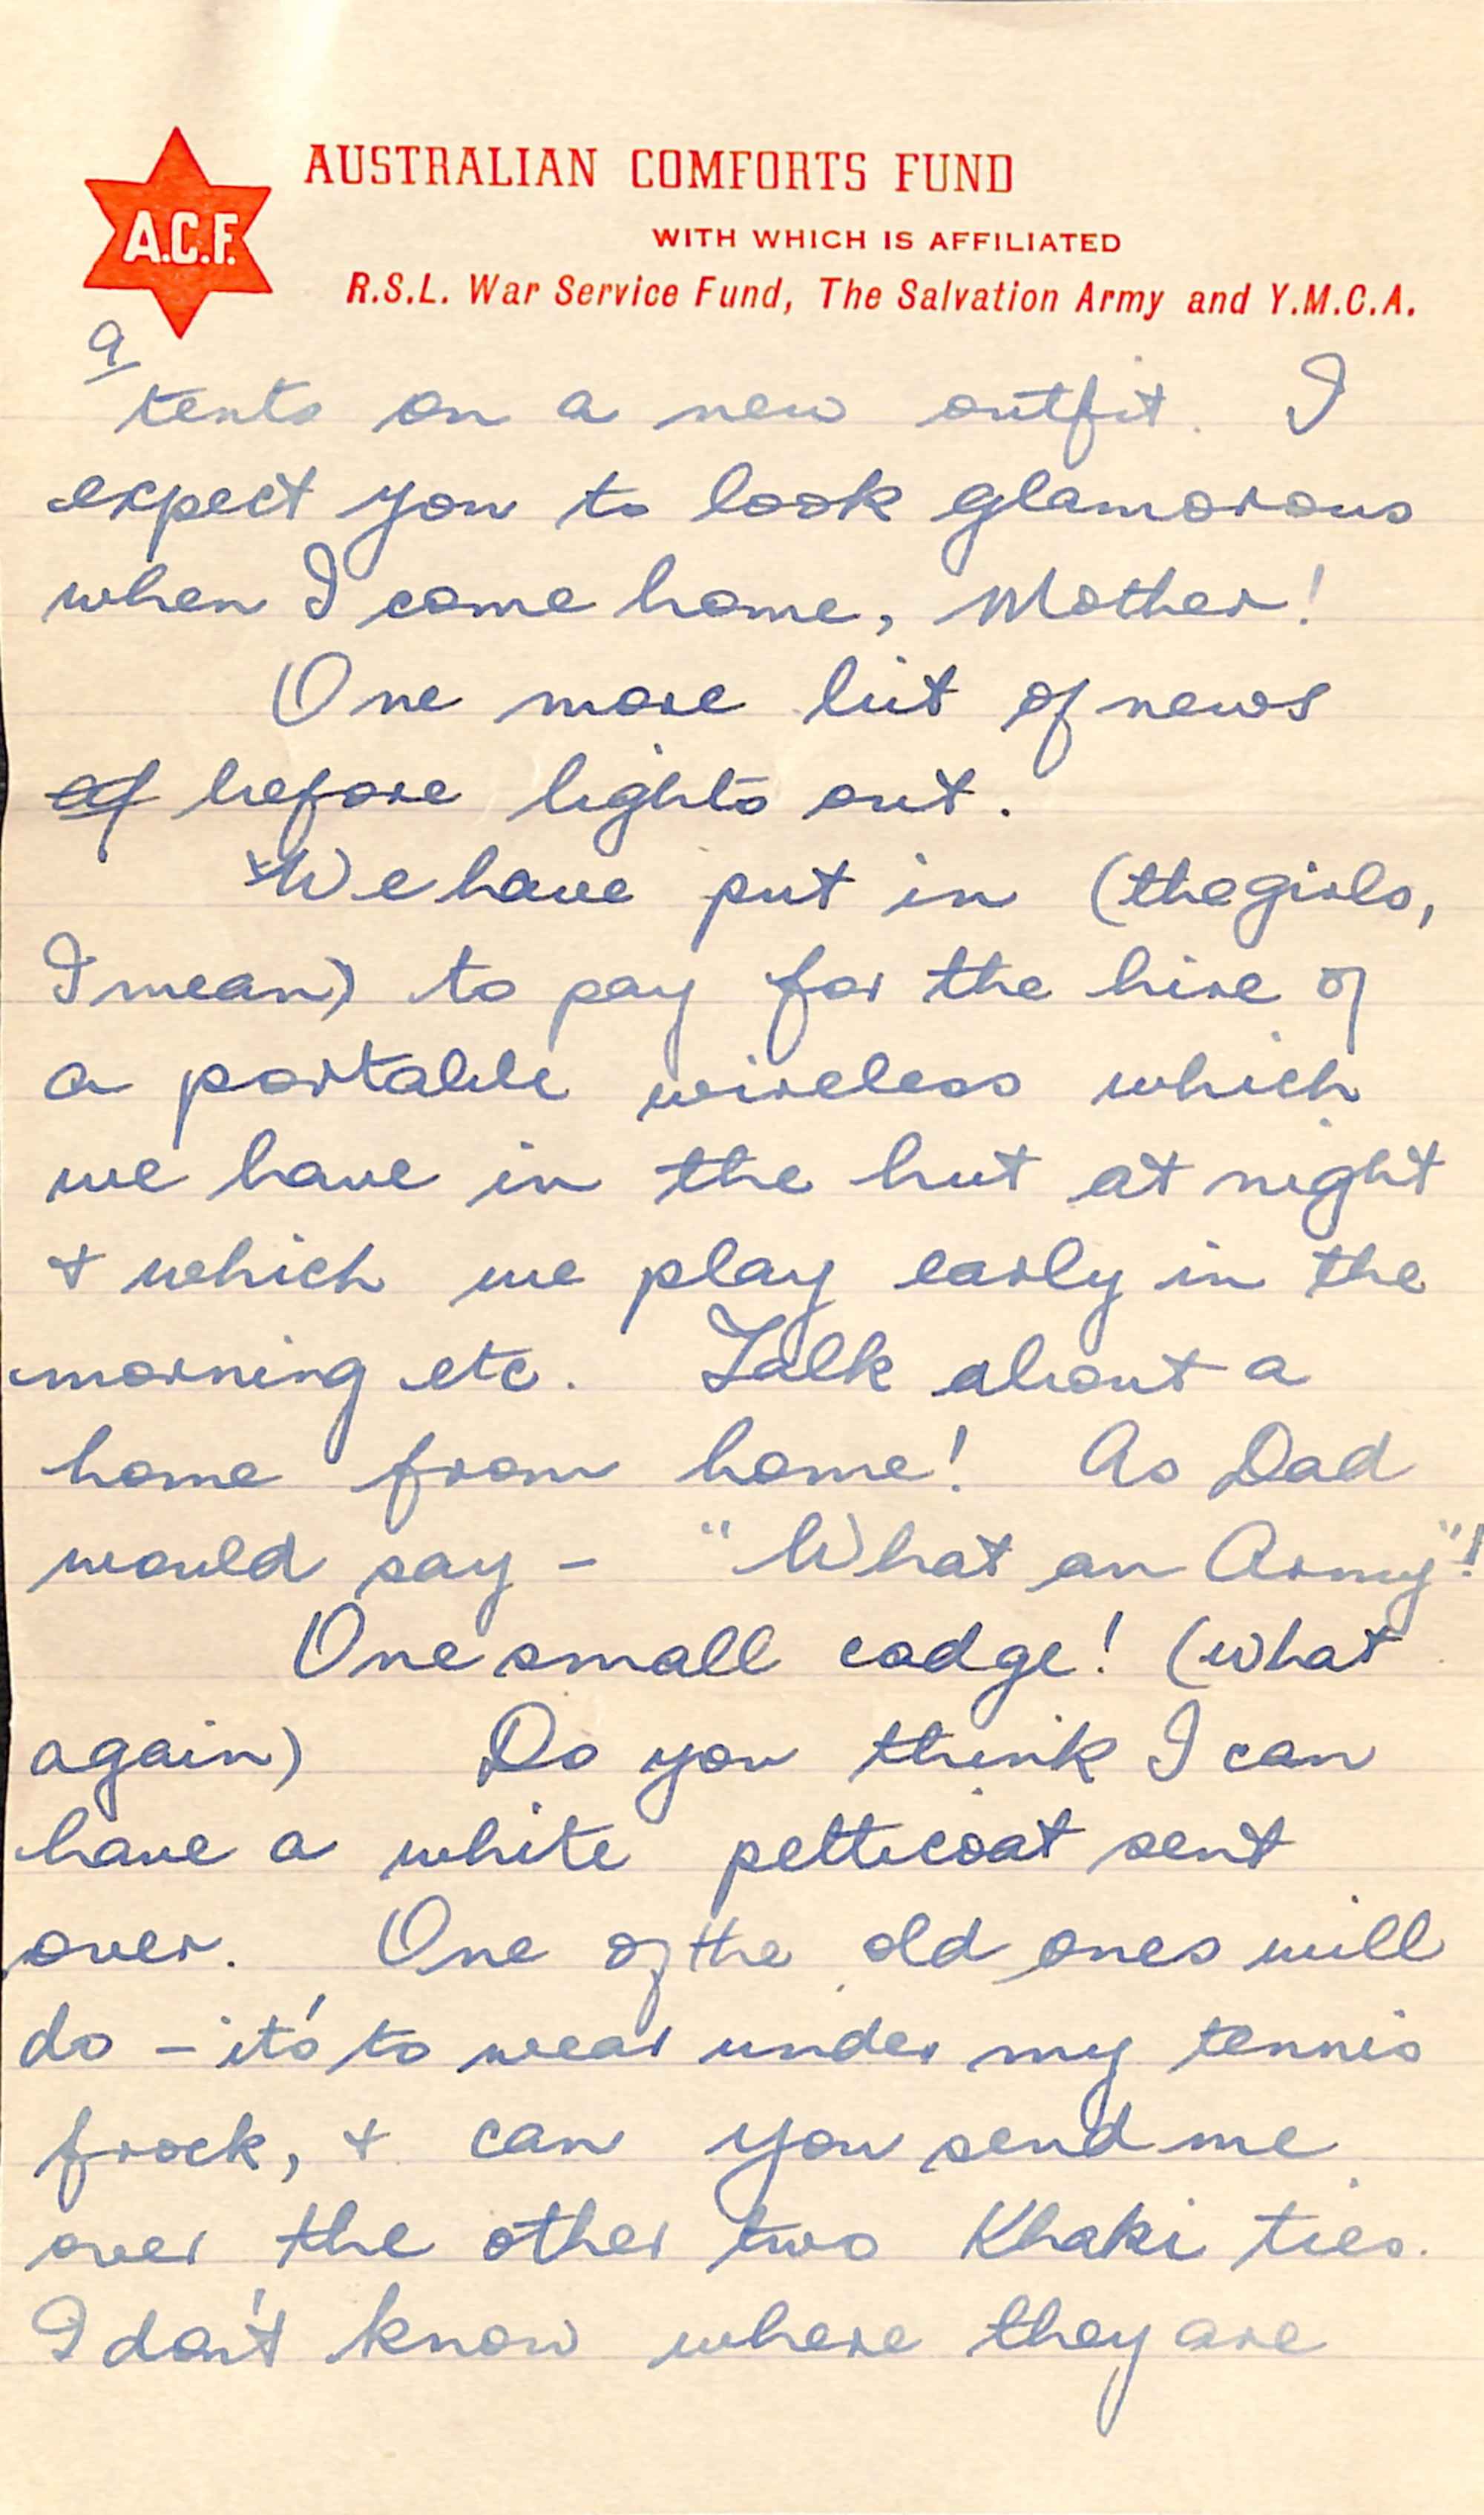 A.C.F.
AUSTRALIAN COMFORTS FUND
WITH WHICH IS AFFILIATED
R.S.L. War Service Fund, The Salvation Army and Y.M.C.A.
9
tents on a new outfit. I
expect you to look glamorous
when I come home, Mother!
One more bit of news
of before lights out.
We have put in (the girls,
I mean) to pay for the hire of
a portable wireless which
we have in the hut at night
& which we play early in the
morning etc. Talk about a
home from home! As Dad
would say - "What an Army"!
One small cadge! (what
again) Do you think I can
have a white petticoat sent
over. One of the old ones will
do - it's to wear under my tennis
frock, & can you send me
over the other two Khaki ties.
I don't know where they are